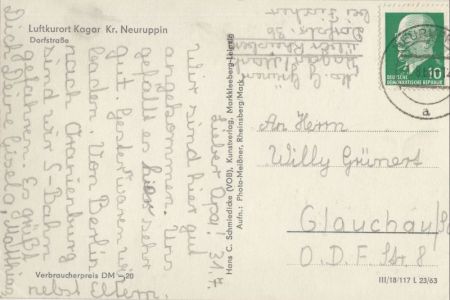 Luftkurort Kagar Kr. Neuruppin
Dorfstraße
Lieber Opa! 31.7.
Wir sind hier gut
angekommen. Uns
gefällt es hier sehr
gut. Gestern waren wir
baden. Von Berlin
nach Oranienburg
sind wir S-Bahn
gefahren. Es grüßt
Dich Deine Gisela, Matthias
nebst Eltern.
Verbraucherpreis DM -,20
Hans C. Schmiedicke (VOB), Kunstverlag, Markkleeberg-Leipzig
Aufn.: Photo-Meißner, Rheinsberg/Mark
DEUTSCHE
DEMOKRATISCHE REPUBLIK
10
a
An Herrn
Willy Grünert
Glauchau/Sa
O.D.F. Str. 8
III/18/117 L 23/63